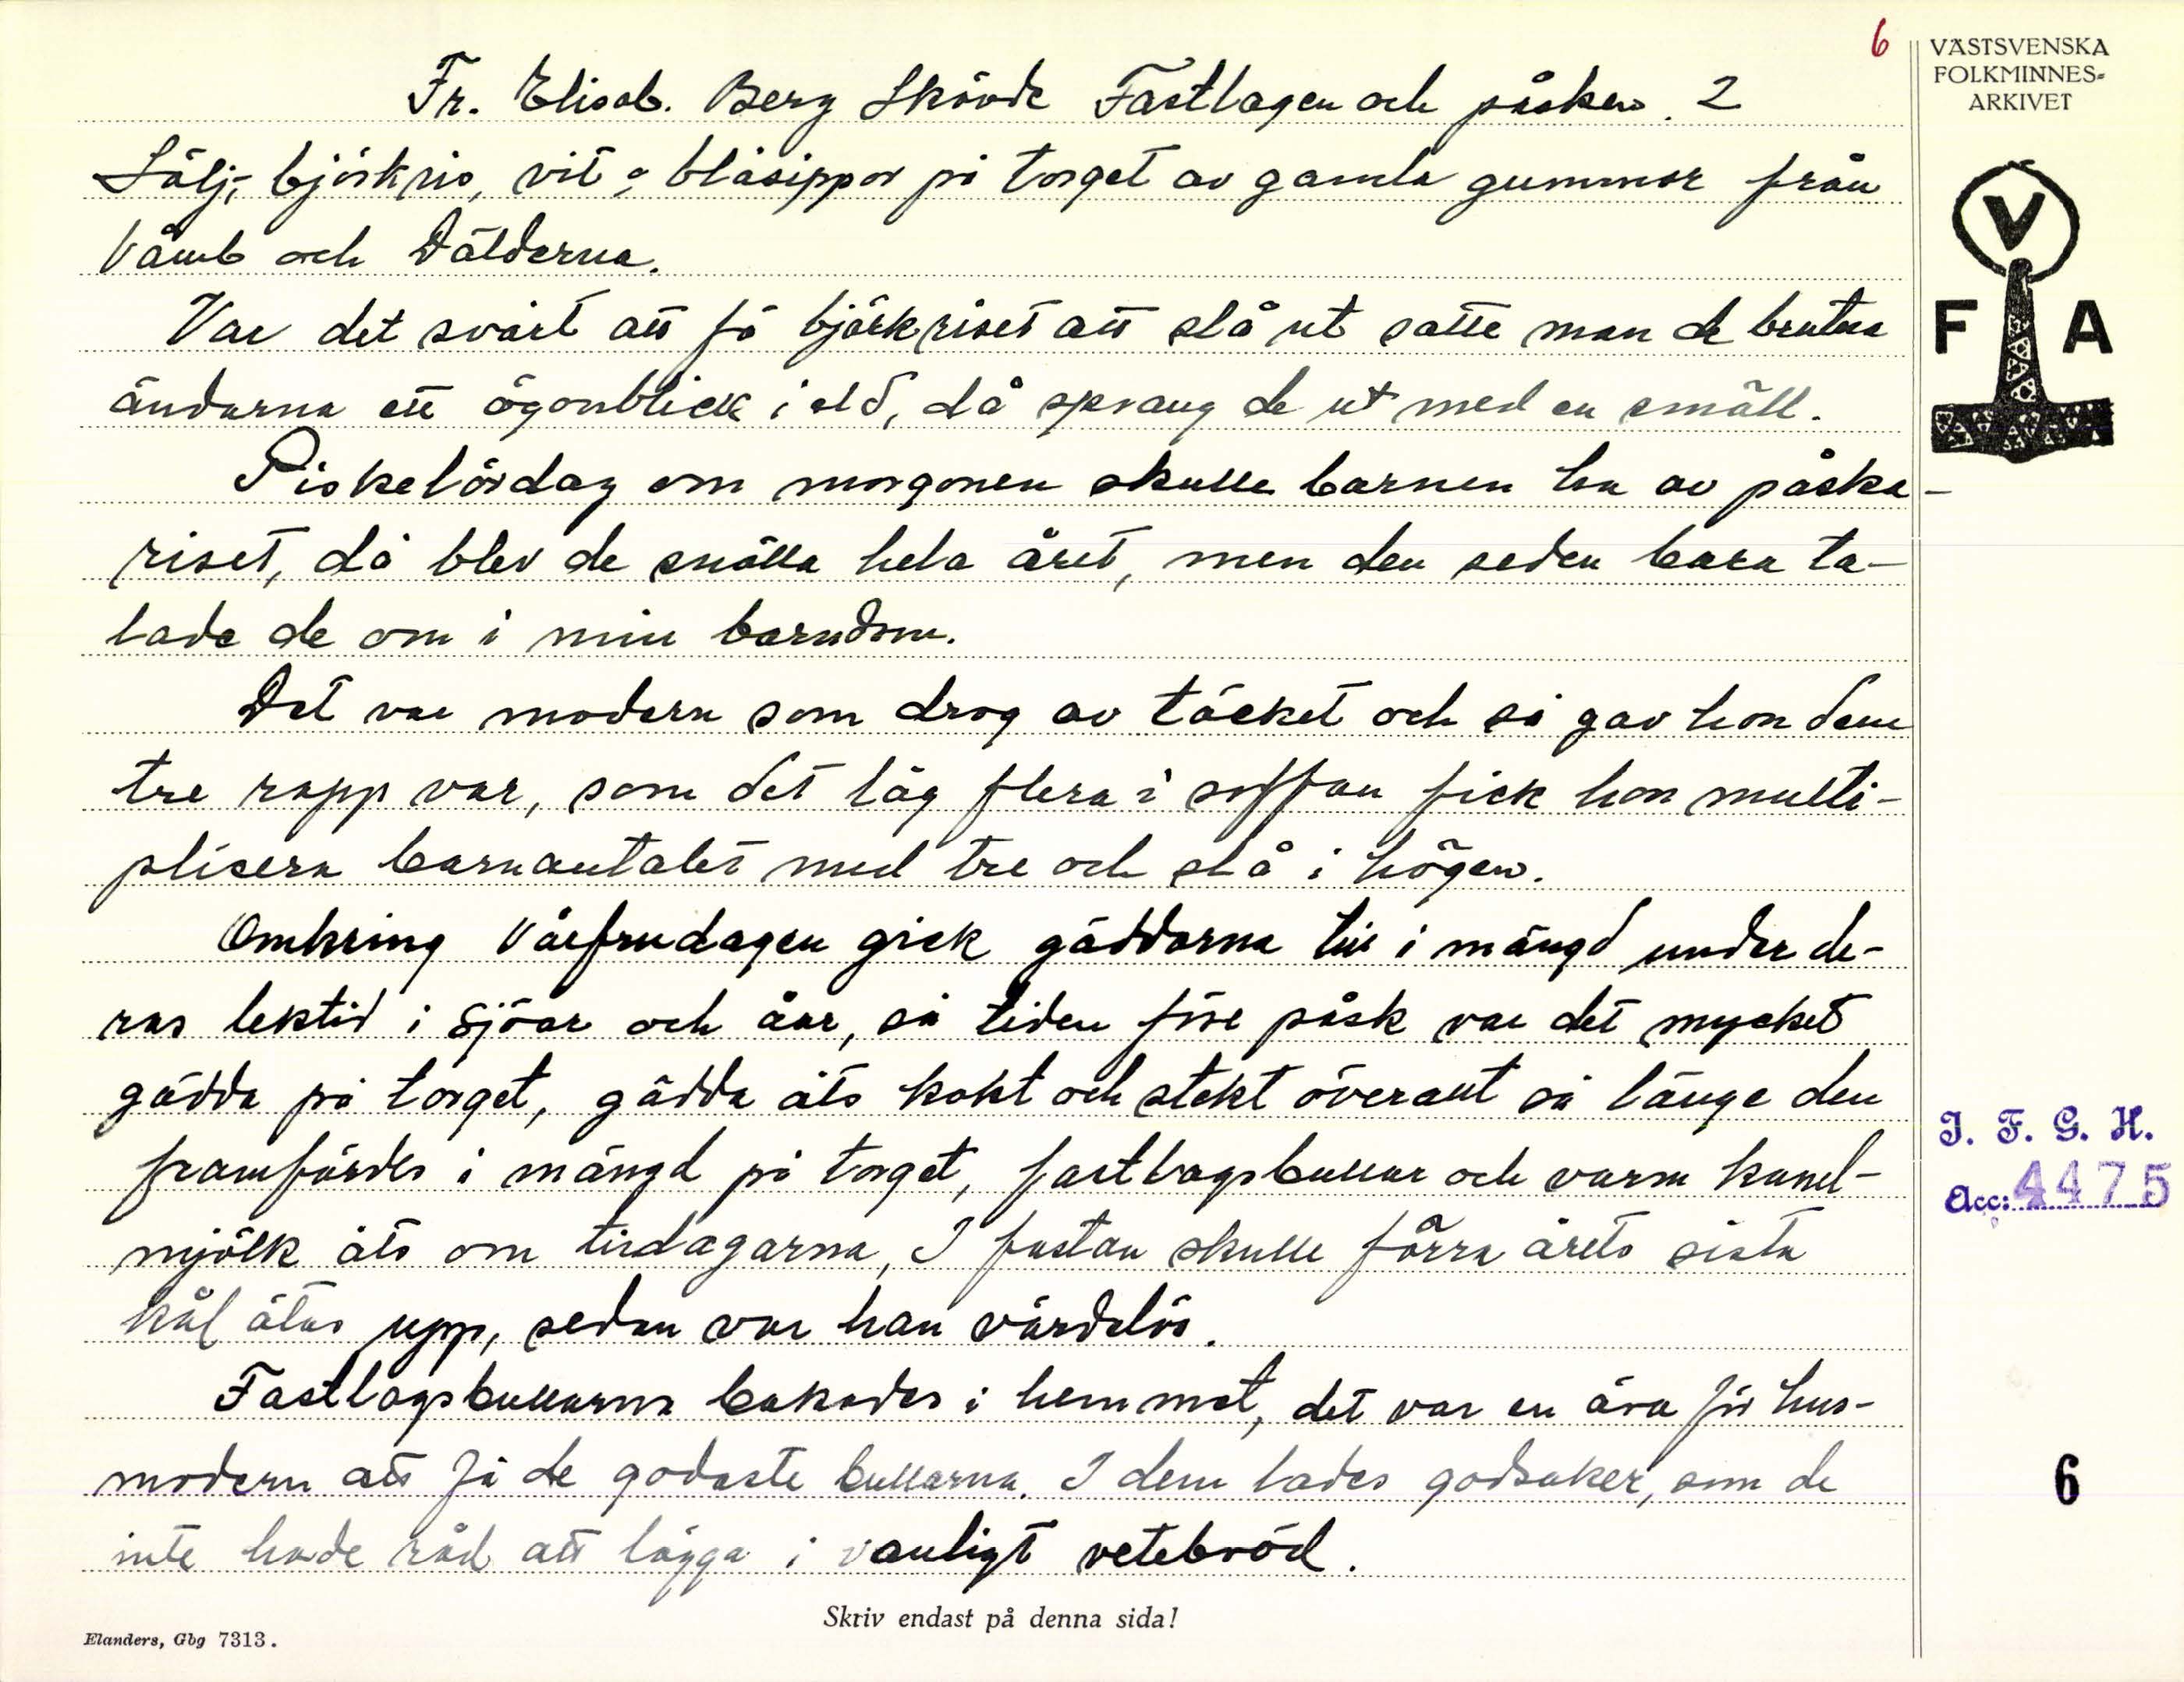 6
VÄSTSVENSKA
FOLKMINNES-
ARKIVET
Fr. Elisab. Berg Skövde Fastlagen och påsken. 2
Sälj-, björkris, vit o blåsippor på torget av gamla gummor från
Våmb och Dälderna.
Var det svårt att få björkriset att slå ut satte man de brutna
ändarna ett ögonblick i eld, då sprang de ut med en smäll.
Piskelördag om morgonen skulle barnen ha av påska-
riset, då blev de snälla hela året, men den seden bara ta-
lade de om i min barndom.
Det var modern som drog av täcket och så gav hon dem
tre rapp var, som det låg flera i soffan fick hon multi-
plisera barnantalet med tre och slå i högen.
Omkring Vårfrudagen gick gäddorna till i mängd under de-
ras lektid i sjöar och åar, så tiden före påsk var det mycket
gädda på torget, gädda åts kokt och stekt överallt så länge den
framfördes i mängd på torget, fastlagsbullar och varm kanel-
mjölk åts om tisdagarna, I fastan skulle förra årets sista
kål ätas upp, sedan var han värdelös.
Fastlagsbullarna bakades i hemmet, det var en ära för hus-
modern att få de godaste bullarna. I dem lades godsaker, som de
inte hade råd att lägga i vanligt vetebröd.
Skriv endast på denna sida!
Elanders, Gbg 7313.
V
F A
I. F. G. H.
Acc: 4475
6